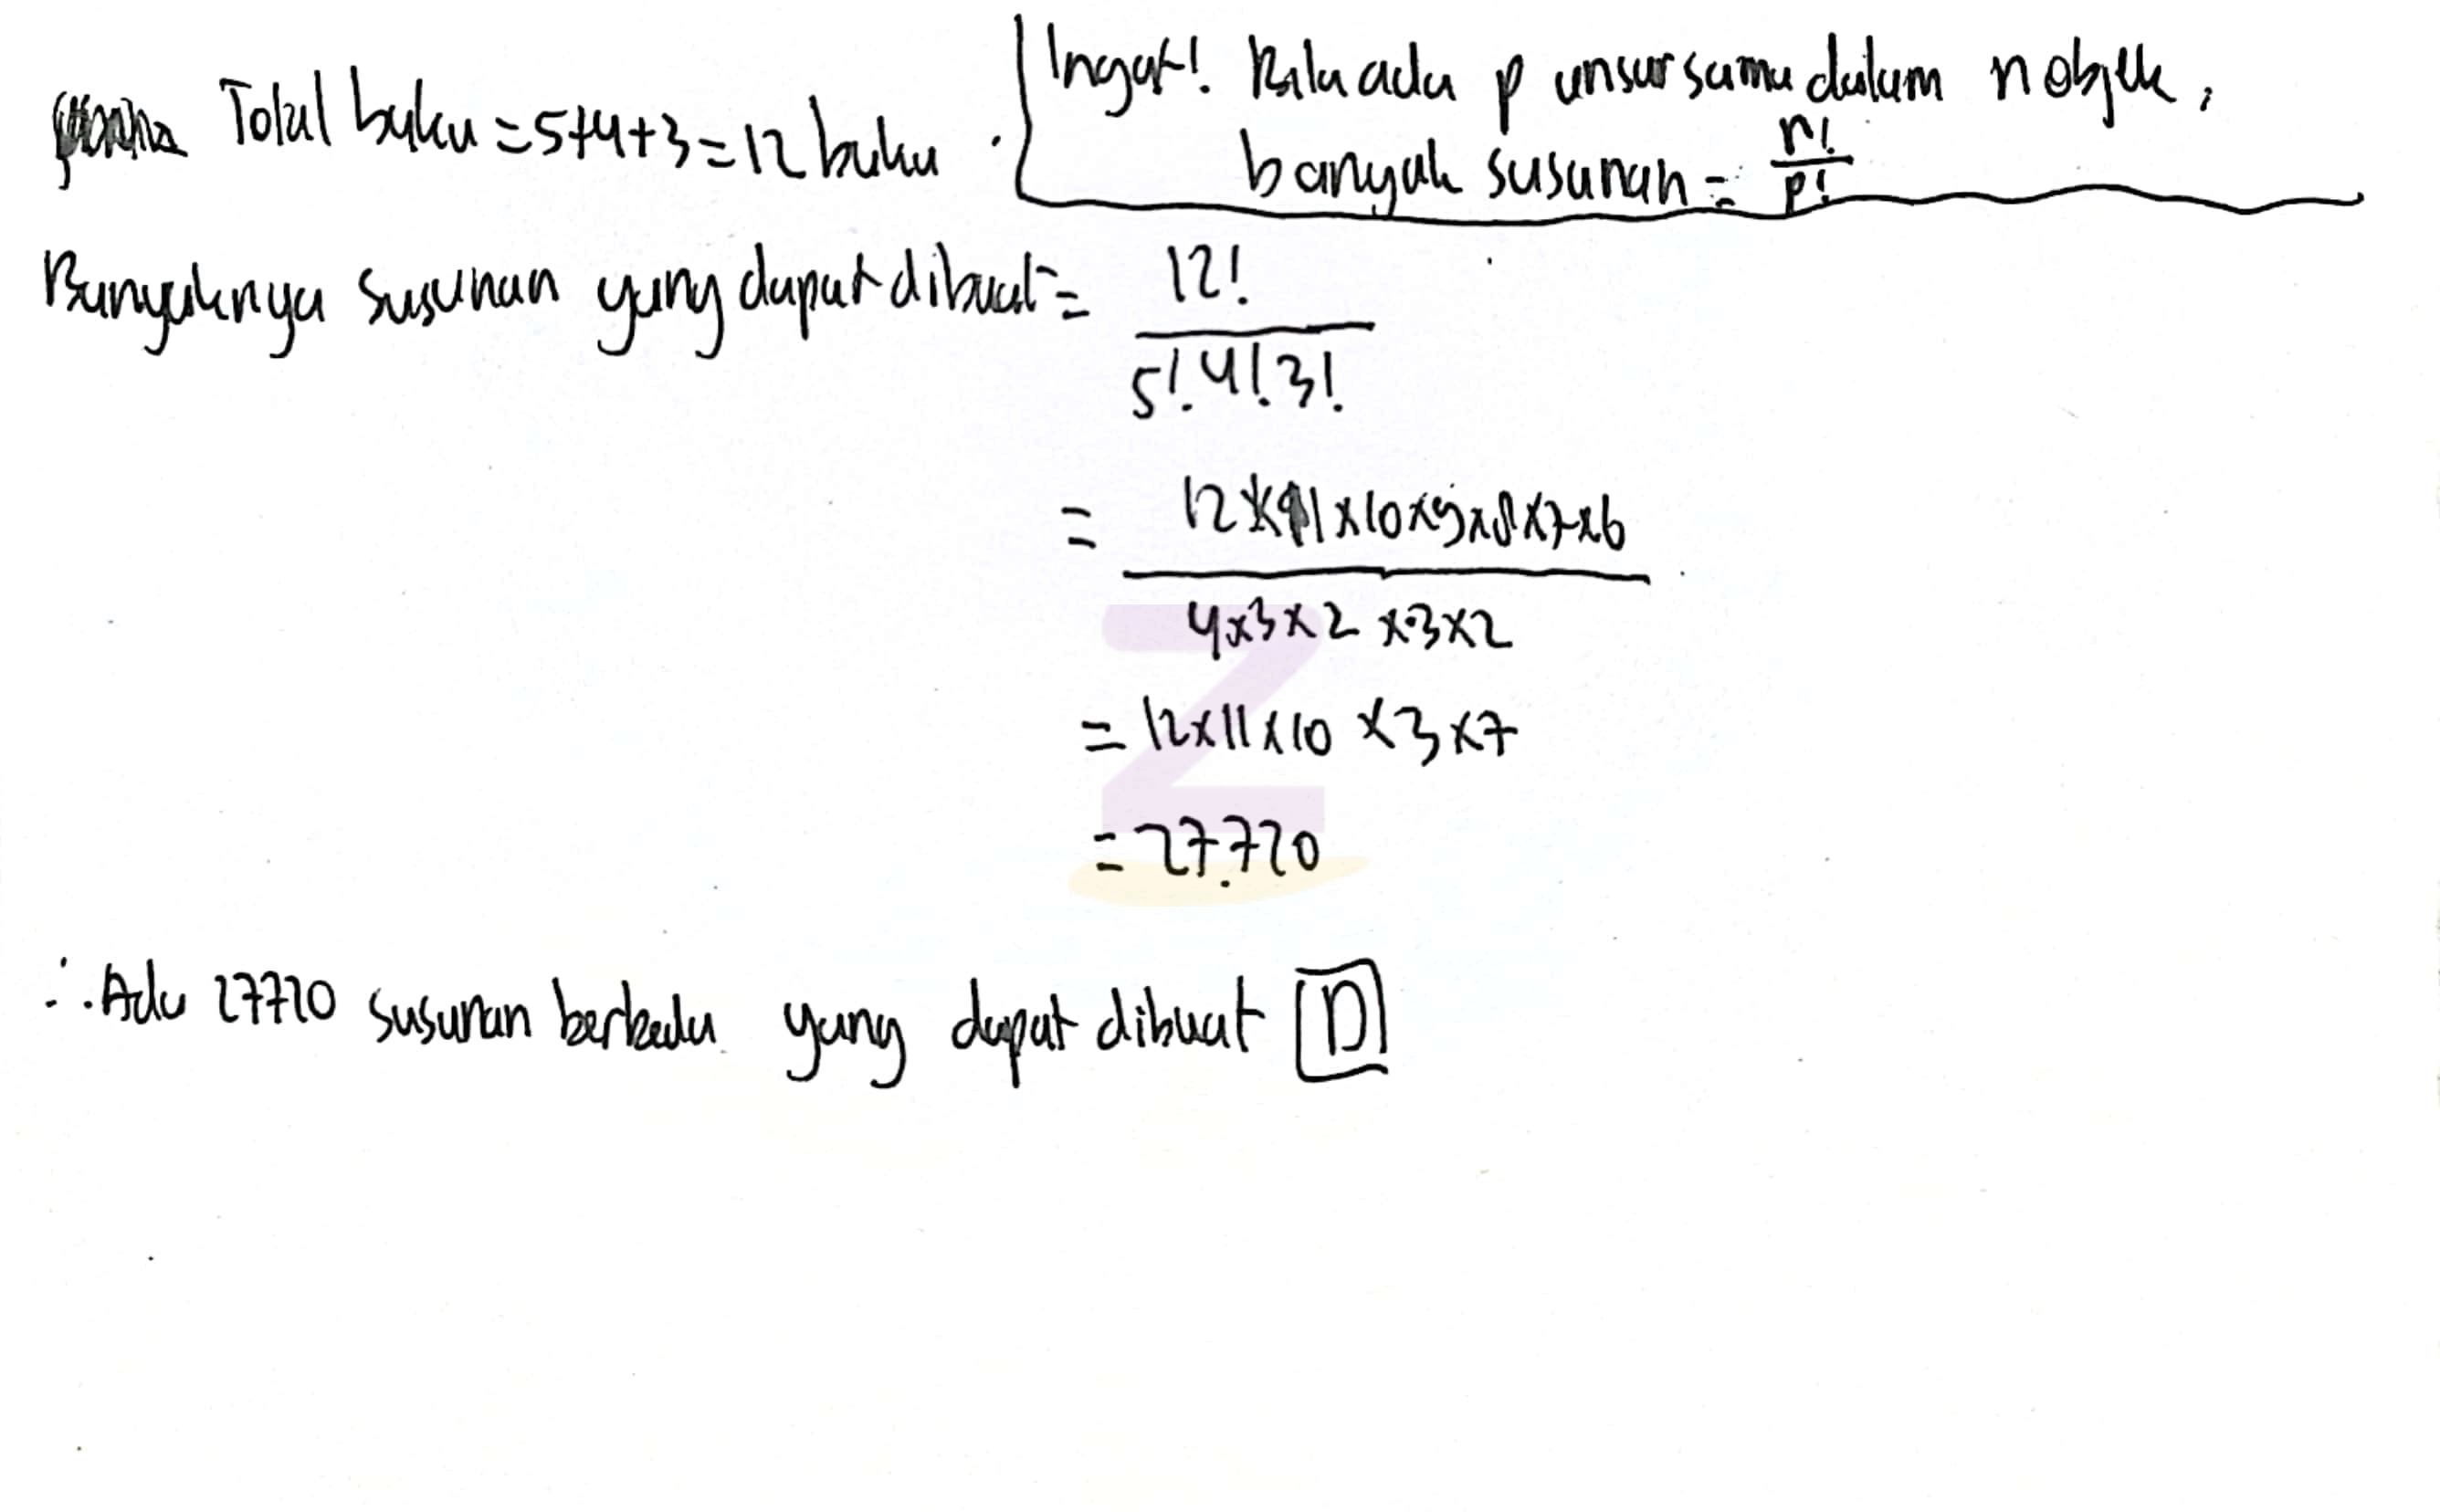 Total buku = 5+4+3 = 12 buku
Ingat! Bila ada p unsur sama dalam n objek,
banyak susunan = n!/p!
Banyaknya susunan yang dapat dibuat = 12!
5! 4! 3!
= 12 x 11 x 10 x 9 x 8 x 7 x 6
4x3x2 x 3x2
= 12x11x10 x3x7
= 27.720
∴ Ada 27720 susunan berbeda yang dapat dibuat D